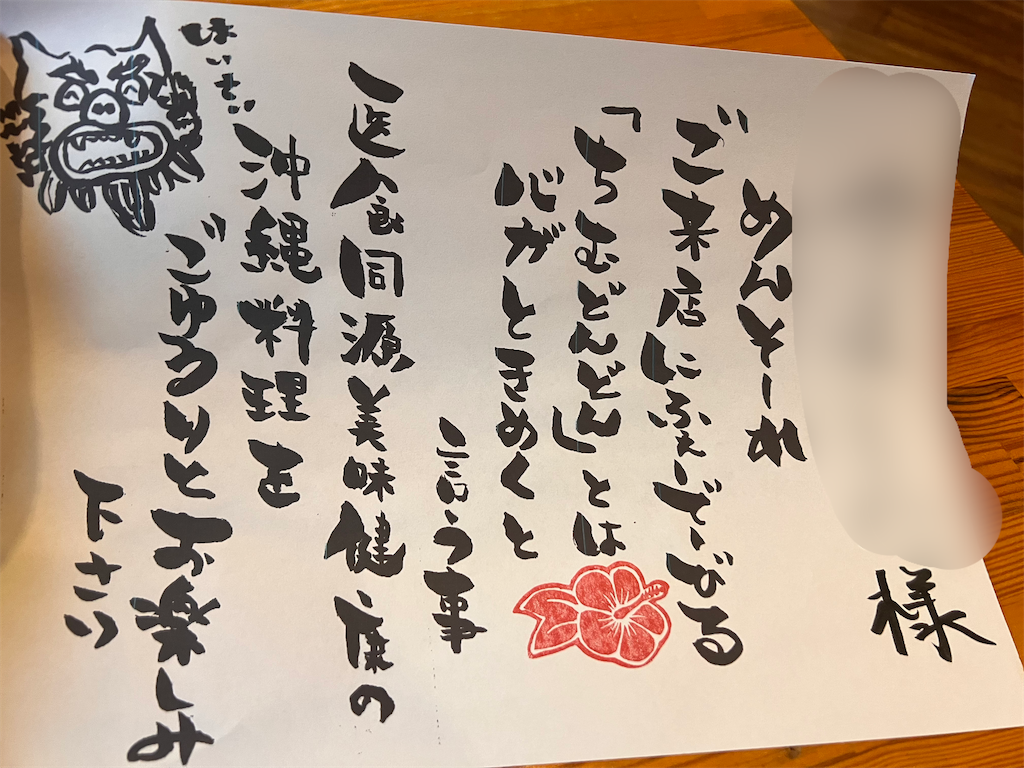 様
めんそーれ
ご来店にふぇーでーびる
「ちむどんどん」とは
心がときめくと
言う事
医食同源美味健康の
沖縄料理を
ごゆるりとお楽しみ
下さい
はいさい